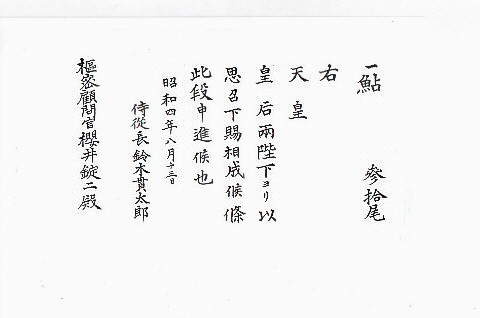 一鮎　參拾尾
右
天皇
皇后兩陛下ヨリ以
思召下賜相成候條
此段申進候也
昭和四年八月十三日
侍從長鈴木貫太郎
樞密顧問官櫻井錠二殿